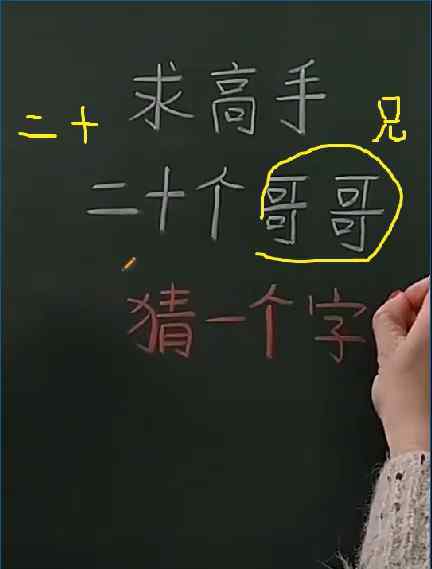 求高手
二十 兄
二十个哥哥
猜一个字